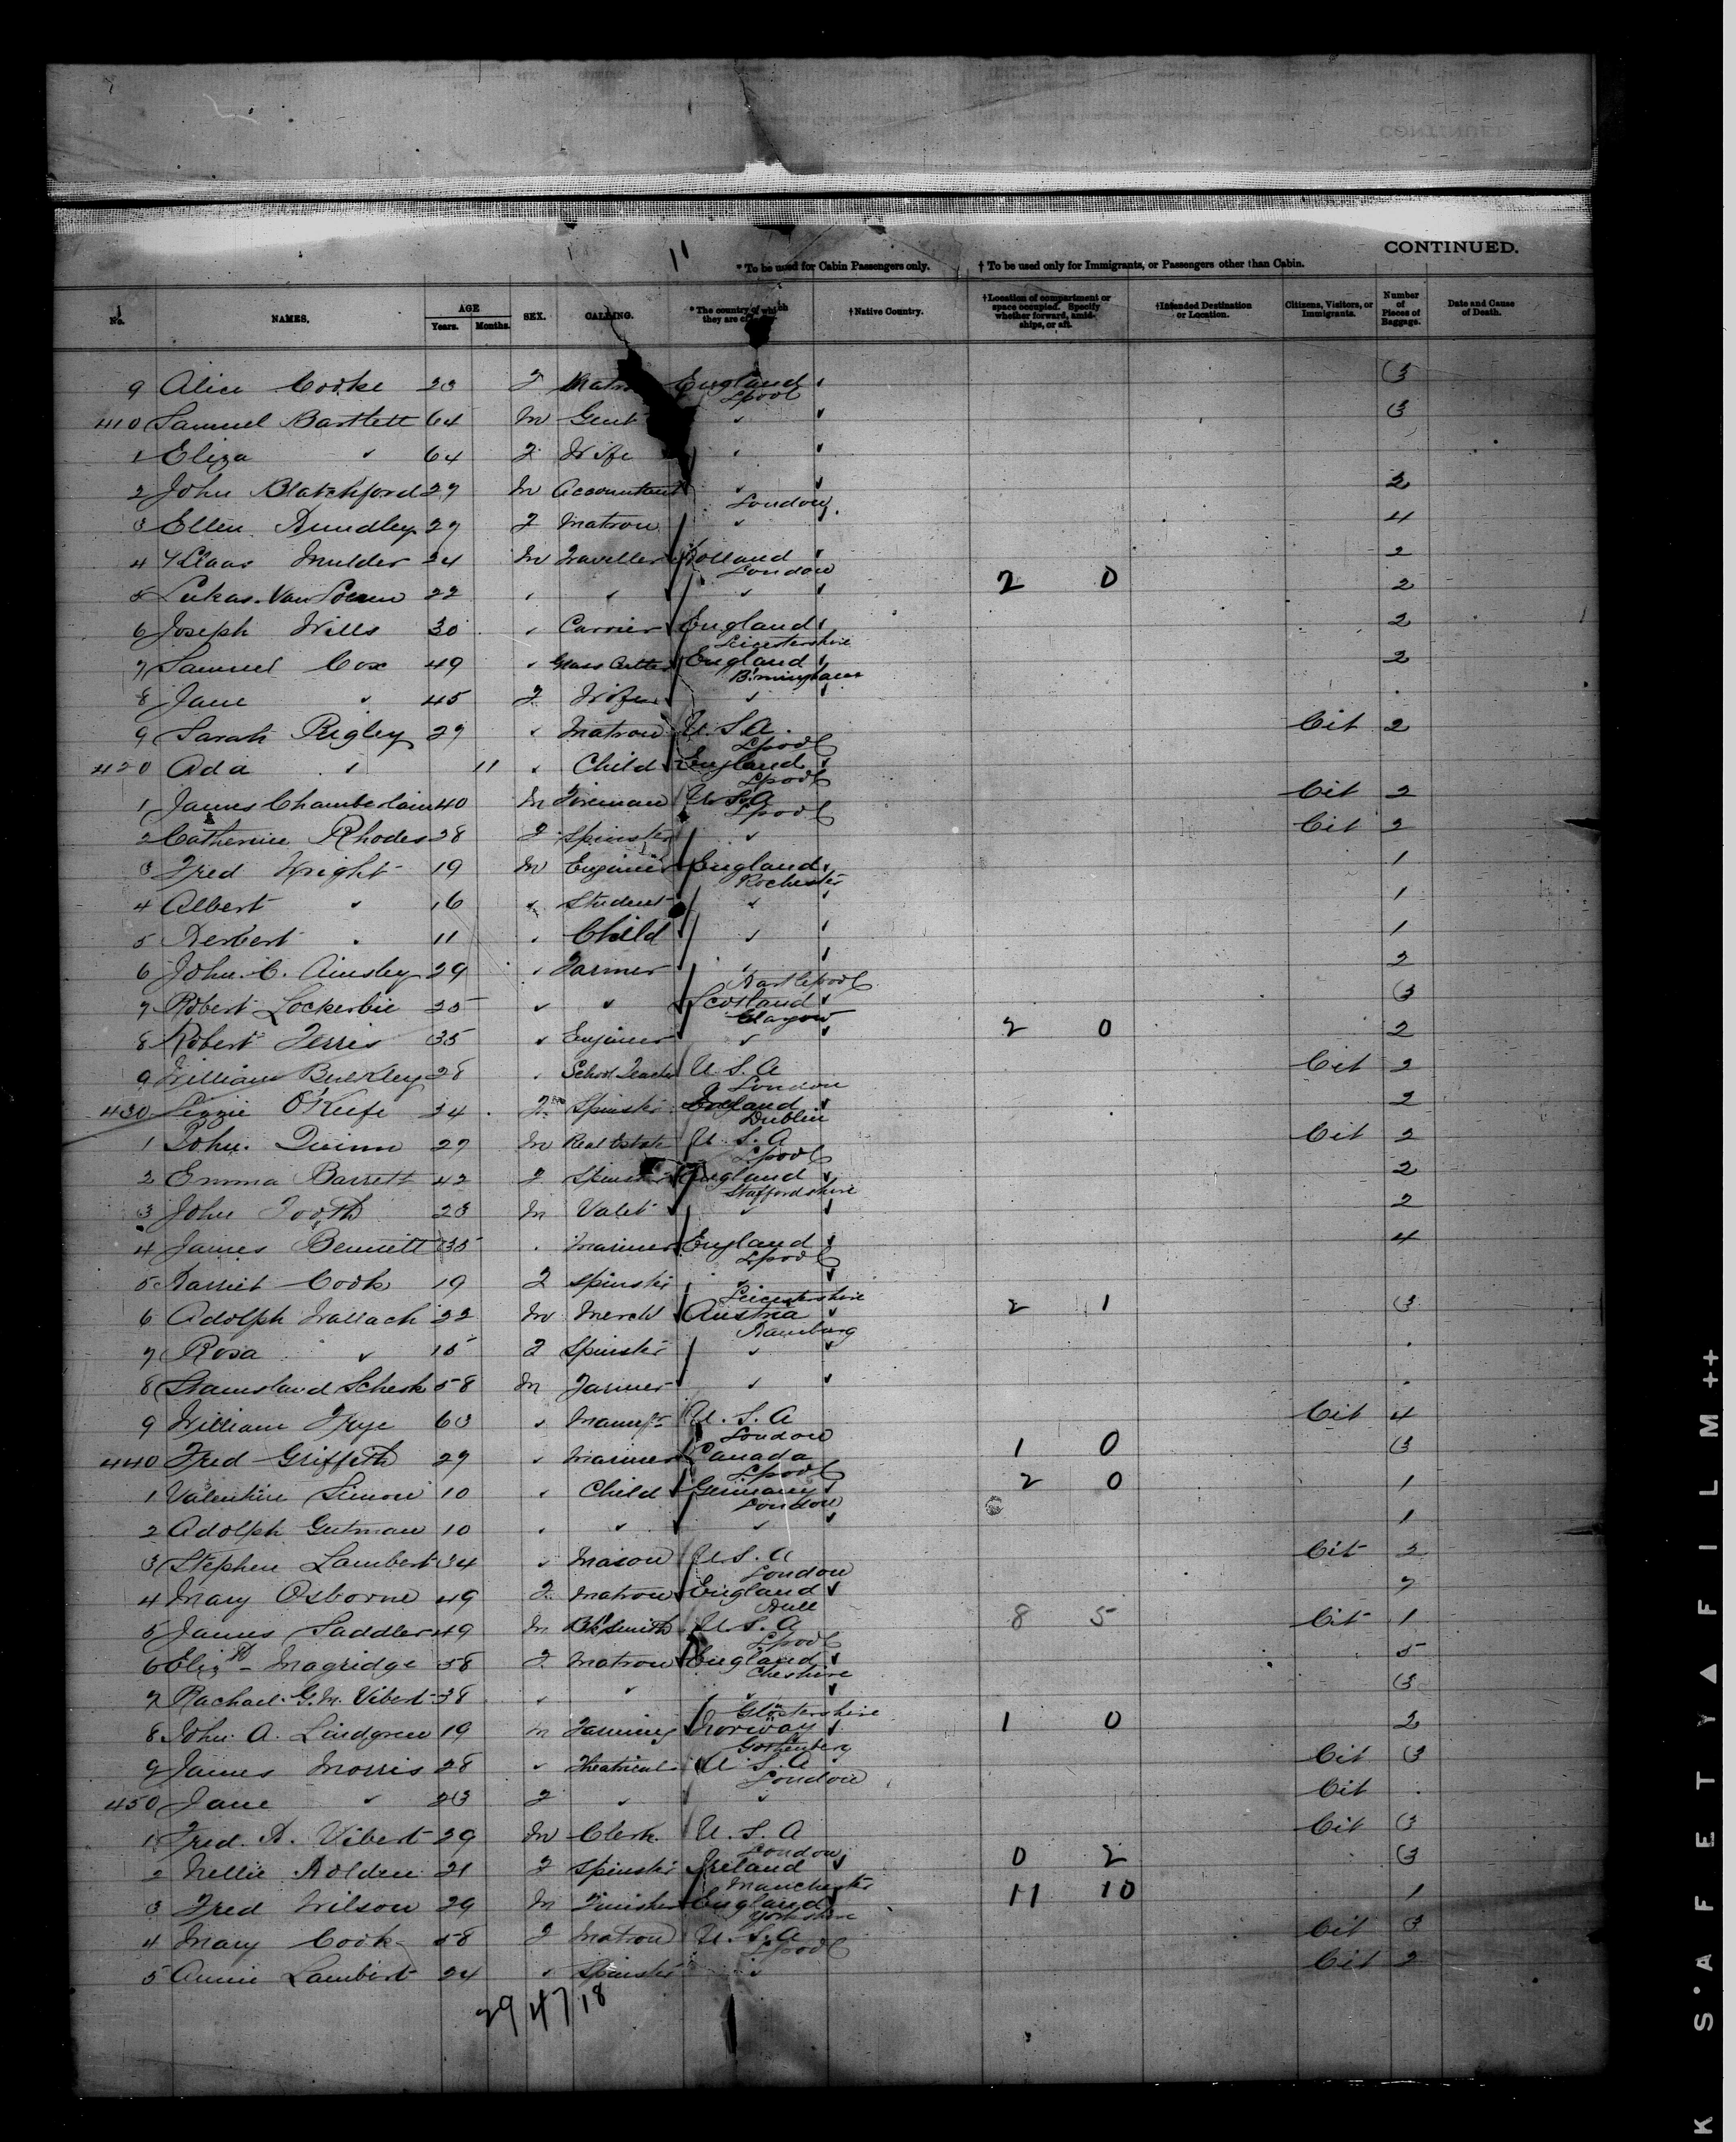 CONTINUED.
11
* To be used for Cabin Passengers only. † To be used only for Immigrants, or Passengers other than Cabin.
No. NAMES. AGE Years. Months. SEX. CALLING. * The country of which they are citizens. † Native Country. † Location of compartment or space occupied. Specify whether forward, amidships, or aft. † Intended Destination or Location. Citizens, Visitors, or Immigrants. Number of Pieces of Baggage. Date and Cause of Death.
9 Alice Cooke 23 F England 3
Lpool
410 Samuel Bartlett 64 M Gent " 3
1 Eliza " 64 F Wife "
2 John Blatchford 27 M Accountant " 2
London
3 Ellen Hundley 27 F Matron " 4
4 Klaas Mulder 24 M Traveller Holland 2
London
2 0
5 Lukas Van 22 " " " 2
6 Joseph Wills 30 " Carrier England 2
Leicestershire
7 Samuel Cox 49 " Glass Cutter England 2
Birmingham
8 Jane " 45 F Wife "
9 Sarah Rigley 29 " Matron U.S.A. Cit 2
Lpool
420 Ada " 11 " Child England
Lpool
1 James Chamberlain 40 M Fireman U.S.A Cit 2
Lpool
2 Catherine Rhodes 28 F Spinster " Cit 2
3 Fred Wright 19 M Engineer England 1
Rochester
4 Albert " 16 " Student " 1
5 Herbert " 11 " Child " 1
6 John C. Ainsley 29 " Farmer " 2
Hartlepool
7 Robert Lockerbie 25 " " Scotland 3
Glasgow
2 0
8 Robert Ferris 35 " Engineer " 2
9 William Bulkley 28 " School Teacher U.S.A Cit 2
London
430 Lizzie O'Keefe 24 F Spinster Ireland 2
Dublin
1 John Quinn 27 M Real Estate U.S.A Cit 2
Lpool
2 Emma Barrett 42 F Spinster England 2
Staffordshire
3 John Tooth 23 M Valet " 2
4 James Bennett 35 " Mariner England 4
Lpool
5 Harriet Cook 19 F Spinster "
Leicestershire
6 Adolph Wallach 22 M Merch't Austria 2 1 3
Hamburg
7 Rosa " 15 F Spinster "
8 58 M Farmer "
9 William Frye 63 " Manufr U.S.A Cit 4
London
440 Fred Griffith 29 " Mariner Canada 1 0 3
Lpool
1 Valentine Simon 10 " Child Germany 2 0 1
London
2 Adolph Gutman 10 " " " 1
3 Stephen Lambert 34 " Mason U.S.A Cit 2
London
4 Mary Osborne 49 F Matron England 7
Hull
5 James Saddler 49 M Blksmith U.S.A 8 5 Cit 1
Lpool
6 Elizth Magridge 58 F Matron England 5
Cheshire
7 Rachael G.M. Vibert 38 " " " 3
Glostershire
8 John A. Lindgren 19 M Farming Norway 1 0 2
Gothenberg
9 James Morris 28 " Theatrical U.S.A Cit 3
London
450 Jane " 23 F " " Cit
1 Fred. H. Vibert 29 M Clerk U.S.A Cit 3
London
2 Nellie Holden 21 F Spinster Ireland 0 2 3
Manchester
3 Fred Wilson 29 M Finisher England 11 10 1
Yorkshire
4 Mary Cook 58 F Matron U.S.A Cit 3
Lpool
5 Annie Lambert 24 " Spinster " Cit 2
29/47/18
K S·A F E T Y ▲ F I L M ++